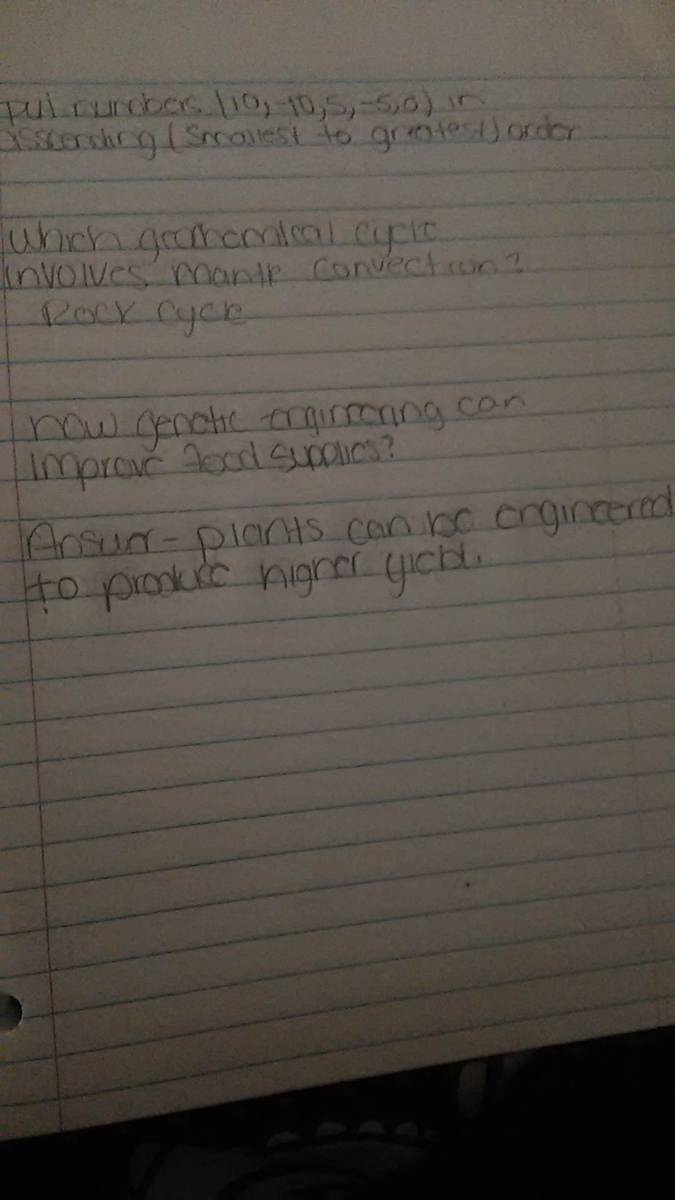 put numbers (10, -10, 5, -5, 0) in
asscending (smallest to greatest) order
which geochemical cycle
involves mantle convection?
Rock cycle
how genetic engineering can
improve food supplies?
Answer - plants can be engineered
to produce higher yield.